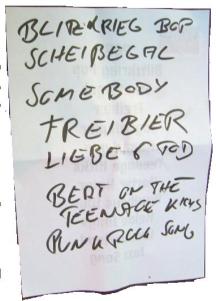 BLITZKRIEG BOP
SCHEIßEGAL
SOMEBODY
FREIBIER
LIEBE & TOD
BERT ON THE
TEENAGE KICKS
PUNKROCK SONG